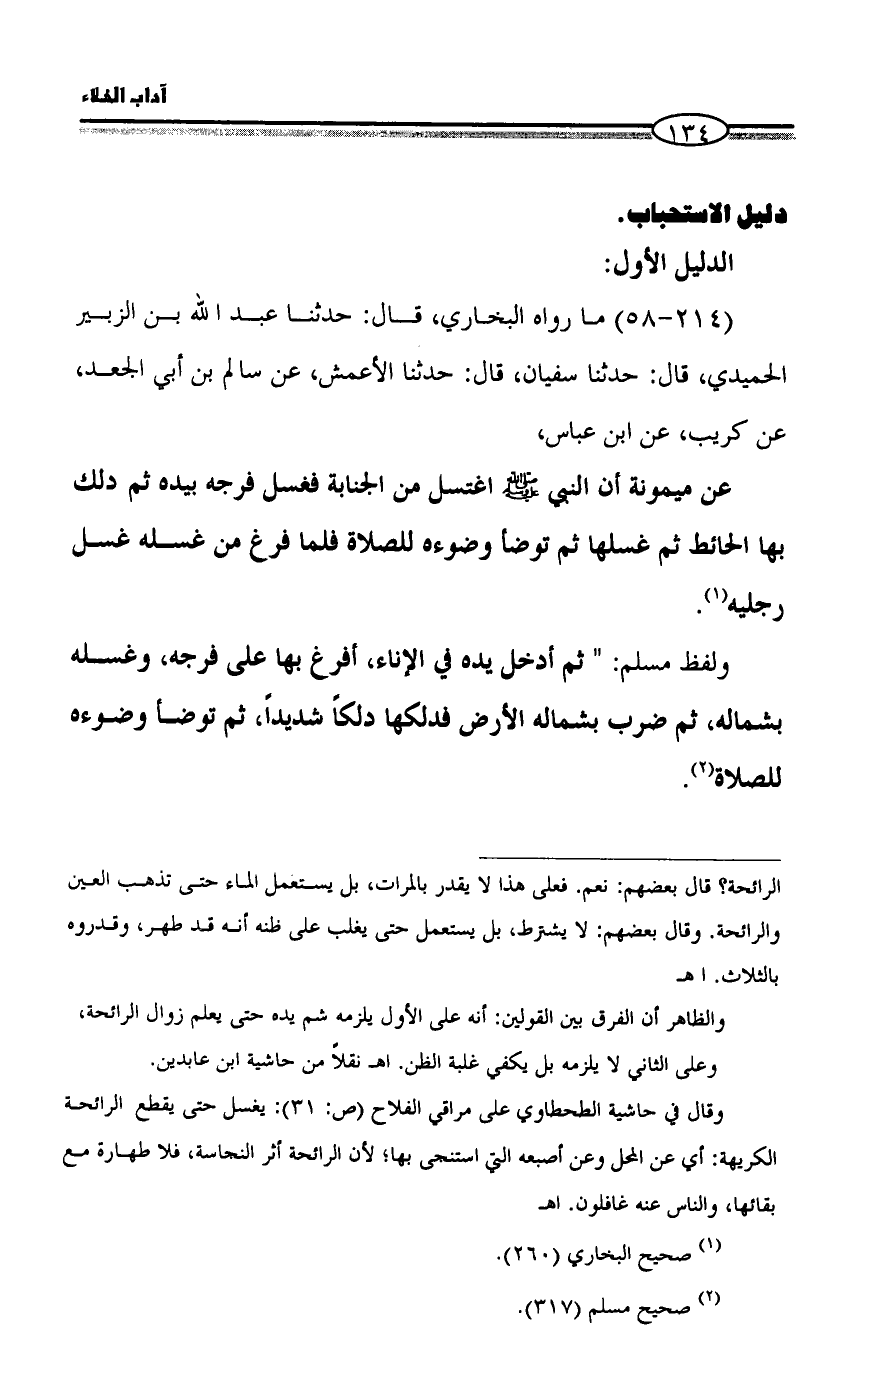 آداب الخلاء
١٣٤
دليل الاستحباب.
الدليل الأول:
(٢١٤-٥٨) ما رواه البخاري، قال: حدثنا عبد الله بن الزبير
الحميدي، قال: حدثنا سفيان، قال: حدثنا الأعمش، عن سالم بن أبي الجعد،
عن كريب، عن ابن عباس،
عن ميمونة أن النبي ﷺ اغتسل من الجنابة فغسل فرجه بيده ثم دلك
بها الحائط ثم غسلها ثم توضأ وضوءه للصلاة فلما فرغ من غسله غسل
رجليه(١).
ولفظ مسلم: " ثم أدخل يده في الإناء، أفرغ بها على فرجه، وغسله
بشماله، ثم ضرب بشماله الأرض فدلكها دلكاً شديداً، ثم توضأ وضوءه
للصلاة(٢).
الرائحة؟ قال بعضهم: نعم. فعلى هذا لا يقدر بالمرات، بل يستعمل الماء حتى تذهب العين
والرائحة. وقال بعضهم: لا يشترط، بل يستعمل حتى يغلب على ظنه أنه قد طهر، وقدروه
بالثلاث. ا هـ
والظاهر أن الفرق بين القولين: أنه على الأول يلزمه شم يده حتى يعلم زوال الرائحة،
وعلى الثاني لا يلزمه بل يكفي غلبة الظن. اهـ نقلاً من حاشية ابن عابدين.
وقال في حاشية الطحطاوي على مراقي الفلاح (ص: ٣١): يغسل حتى يقطع الرائحة
الكريهة: أي عن المحل وعن أصبعه التي استنجى بها؛ لأن الرائحة أثر النجاسة، فلا طهارة مع
بقائها، والناس عنه غافلون. اهـ
(١) صحيح البخاري (٢٦٠).
(٢) صحيح مسلم (٣١٧).